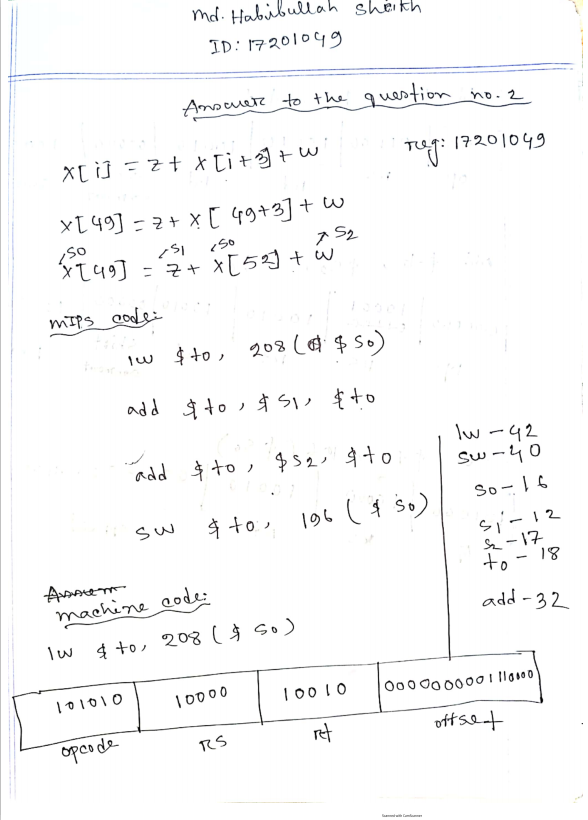 Md. Habibullah Sheikh
ID: 17201049
Answere to the question no. 2
reg: 17201049
X[i] = z + X[i+3] + w
X[49] = z + X[49+3] + w
S0 S1 S0 S2
X[49] = z + X[52] + w
MIPs code:
lw $t0, 208($S0)
add $t0, $S1, $t0
add $t0, $S2, $t0
sw $t0, 196($S0)
lw - 42
sw - 40
S0 - 16
S1 - 12
S2 - 17
t0 - 18
add - 32
machine code:
lw $t0, 208($S0)
101010 10000 10010
opcode RS rt offset
Scanned with CamScanner